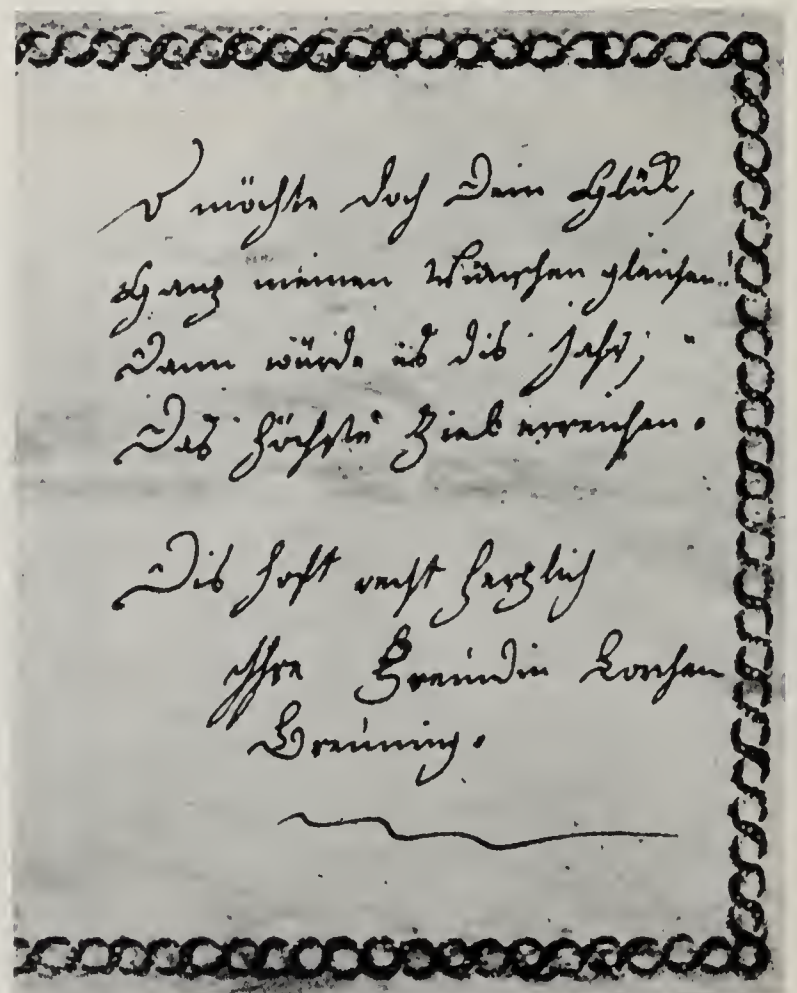 O möchte doch Dein Glück,
Ganz meinen Wünschen gleichen.
Dann würde es dis Jahr;
Das höchste Ziel erreichen.
Dis hoft recht herzlich
Ihre Freundin Lorchen
Breuning.